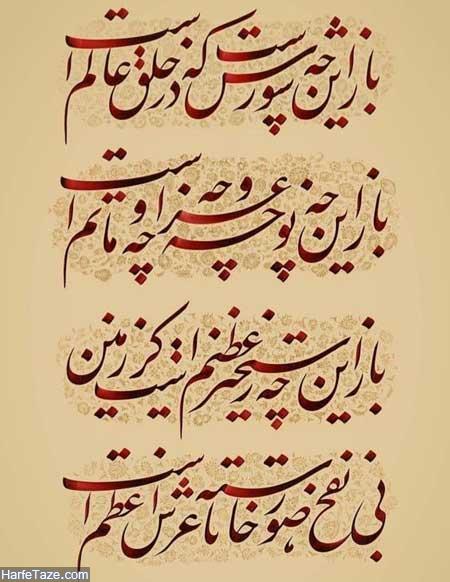 باز این چه شورش است که در خلق عالم است
باز این چه نوحه و چه عزا و چه ماتم است
باز این چه رستخیز عظیم است کز زمین
بی نفخ صور خاسته تا عرش اعظم است
HarfeTaze.com